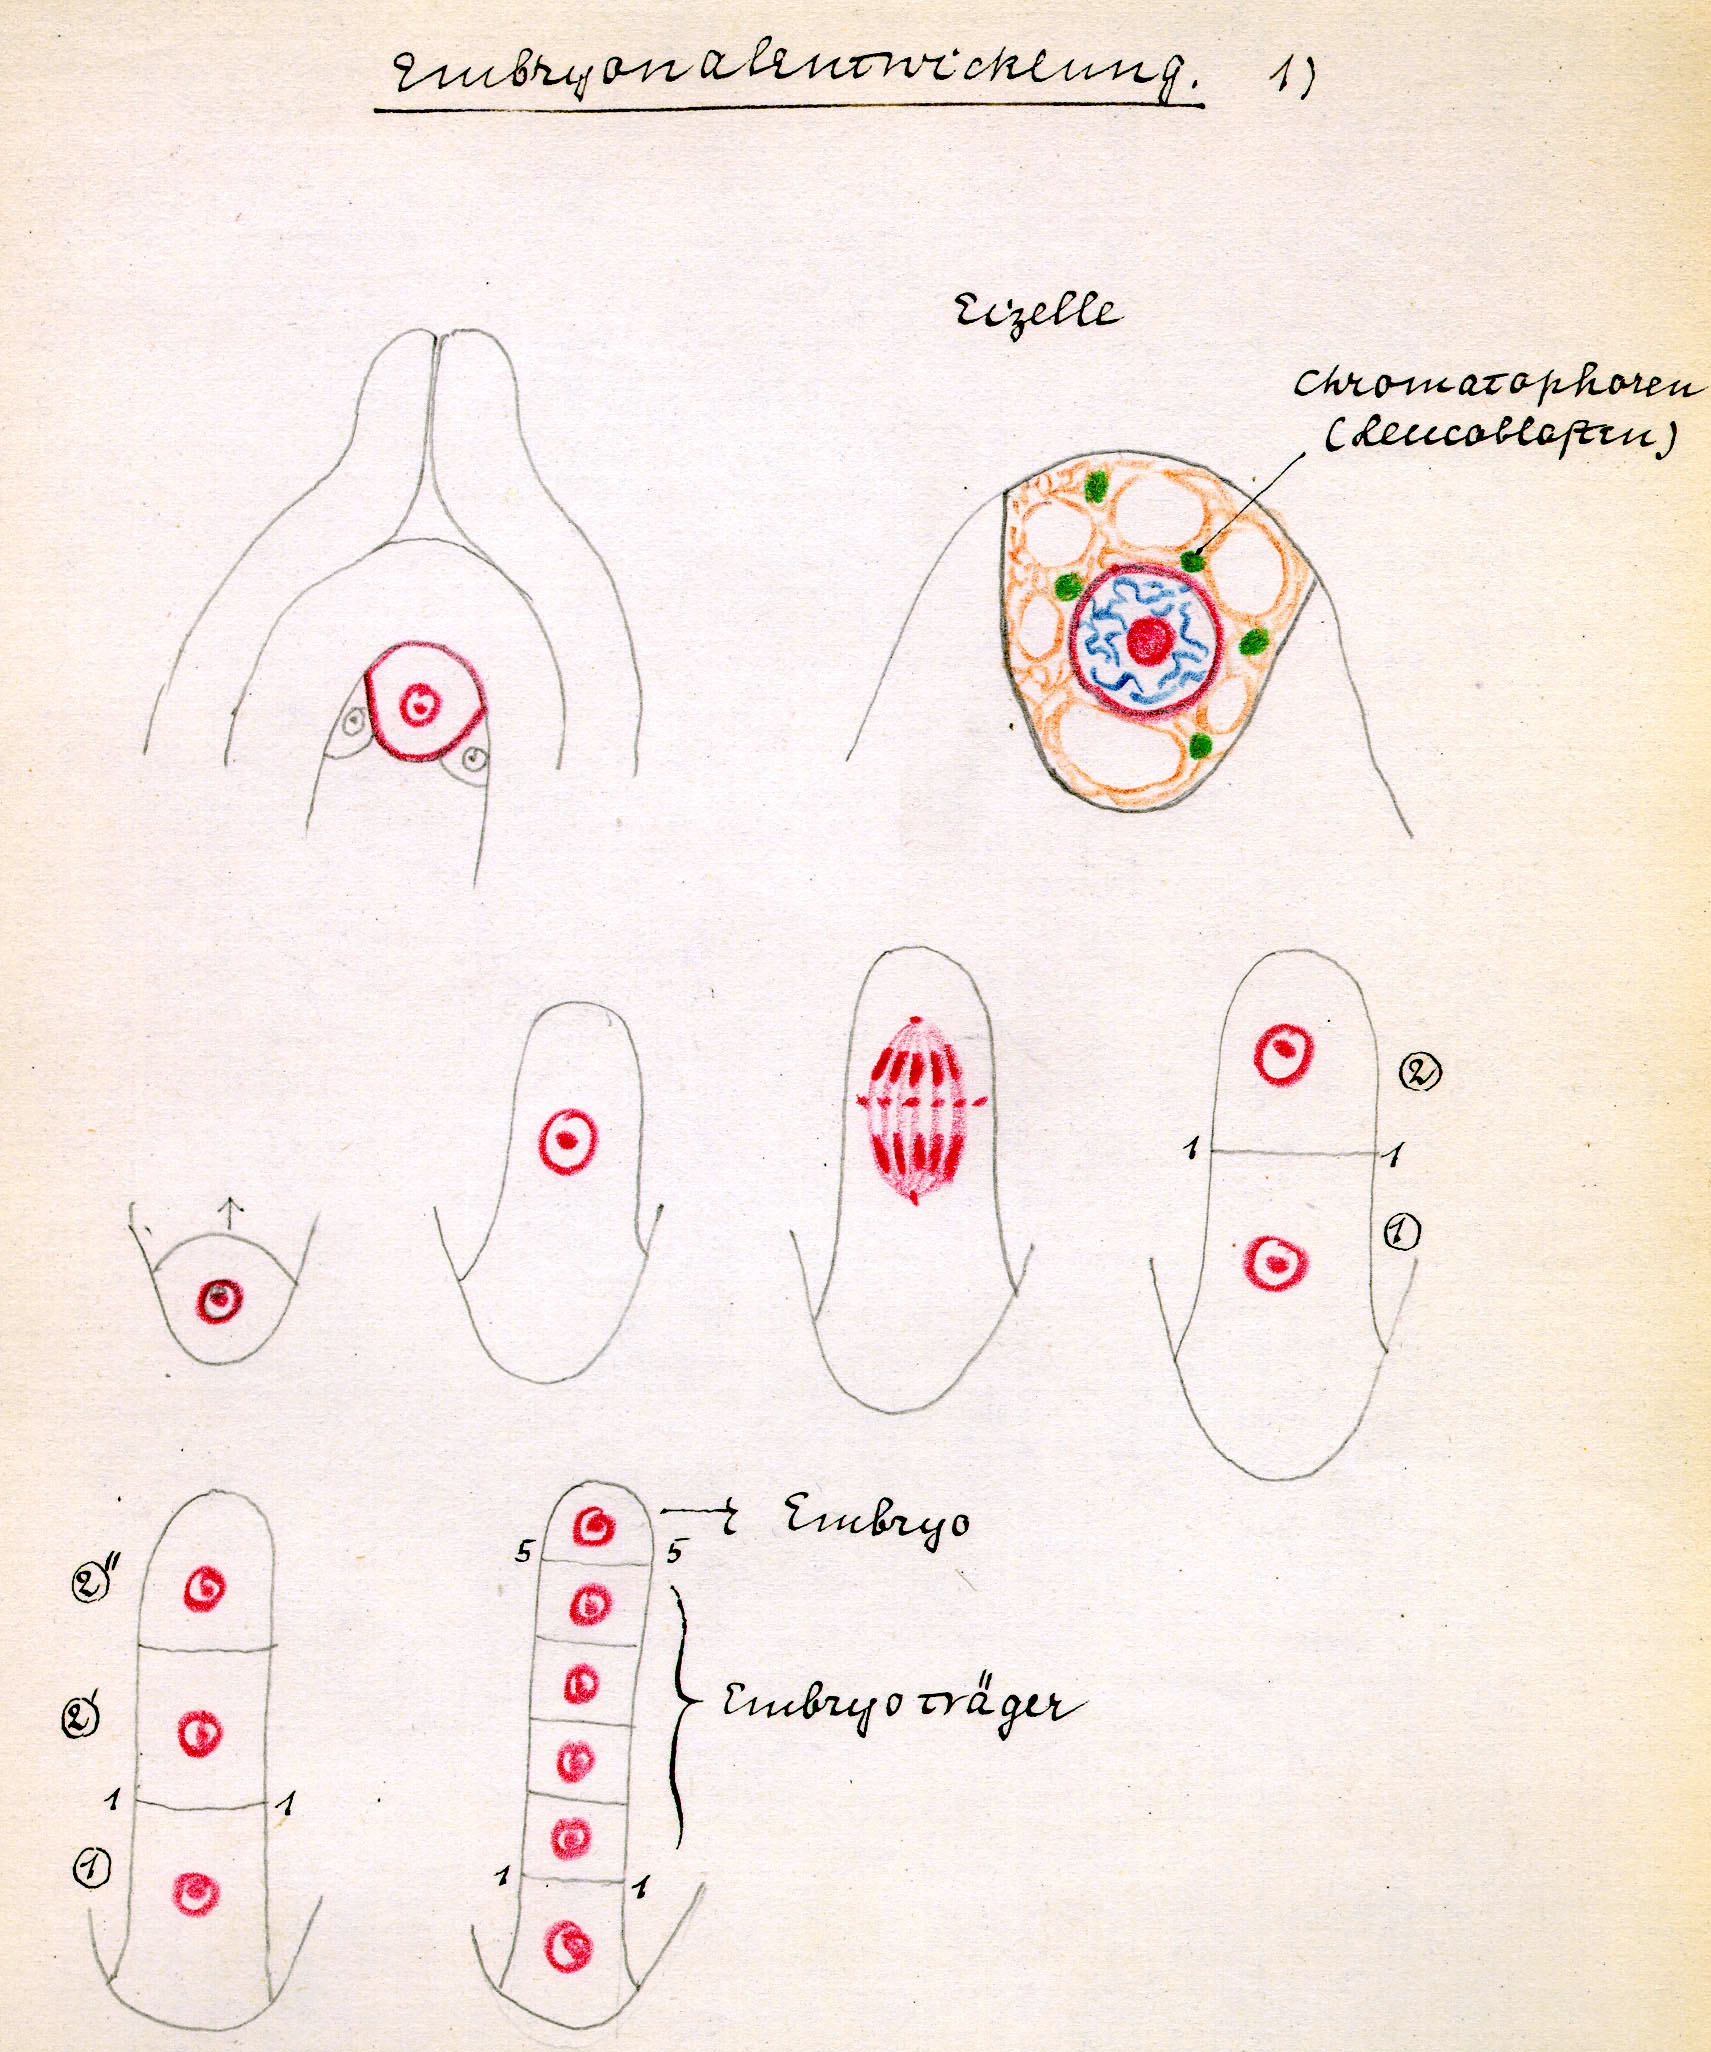 Embryonalentwicklung. 1)
Eizelle
Chromatophoren
(Leucoblasten)
2
1 1
1
5 5
Embryo
2''
Embryoträger
2'
1 1
1
1 1